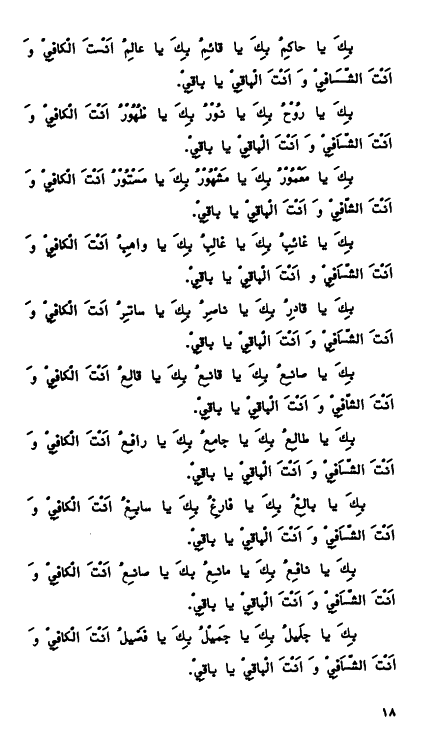 بِكَ يا حاكِمُ بِكَ يا قائِمُ بِكَ يا عالِمُ اَنْتَ الْكافِيْ وَ
اَنْتَ الشّافِيْ وَ اَنْتَ الْباقِيْ يا باقِيْ.
بِكَ يا رُوْحُ بِكَ يا نُوْرُ بِكَ يا ظُهُوْرُ اَنْتَ الْكافِيْ وَ
اَنْتَ الشّافِيْ وَ اَنْتَ الْباقِيْ يا باقِيْ.
بِكَ يا مَعْمُوْرُ بِكَ يا مَشْهُوْرُ بِكَ يا مَسْتُوْرُ اَنْتَ الْكافِيْ وَ
اَنْتَ الشّافِيْ وَ اَنْتَ الْباقِيْ يا باقِيْ.
بِكَ يا غائِبُ بِكَ يا غالِبُ بِكَ يا واهِبُ اَنْتَ الْكافِيْ وَ
اَنْتَ الشّافِيْ و اَنْتَ الْباقِيْ يا باقِيْ.
بِكَ يا قادِرُ بِكَ يا ناصِرُ بِكَ يا ساتِرُ اَنْتَ الْكافِيْ وَ
اَنْتَ الشّافِيْ وَ اَنْتَ الْباقِيْ يا باقِيْ.
بِكَ يا صانِعُ بِكَ يا قانِعُ بِكَ يا قالِعُ اَنْتَ الْكافِيْ وَ
اَنْتَ الشّافِيْ وَ اَنْتَ الْباقِيْ يا باقِيْ.
بِكَ يا طالِعُ بِكَ يا جامِعُ بِكَ يا رافِعُ اَنْتَ الْكافِيْ وَ
اَنْتَ الشّافِيْ وَ اَنْتَ الْباقِيْ يا باقِيْ.
بِكَ يا بالِغُ بِكَ يا فارِغُ بِكَ يا سابِغُ اَنْتَ الْكافِيْ وَ
اَنْتَ الشّافِيْ وَ اَنْتَ الْباقِيْ يا باقِيْ.
بِكَ يا نافِعُ بِكَ يا مانِعُ بِكَ يا صانِعُ اَنْتَ الْكافِيْ وَ
اَنْتَ الشّافِيْ وَ اَنْتَ الْباقِيْ يا باقِيْ.
بِكَ يا جَلِيلُ بِكَ يا جَمِيْلُ بِكَ يا فَضِيلُ اَنْتَ الْكافِيْ وَ
اَنْتَ الشّافِيْ وَ اَنْتَ الْباقِيْ يا باقِيْ.
١٨